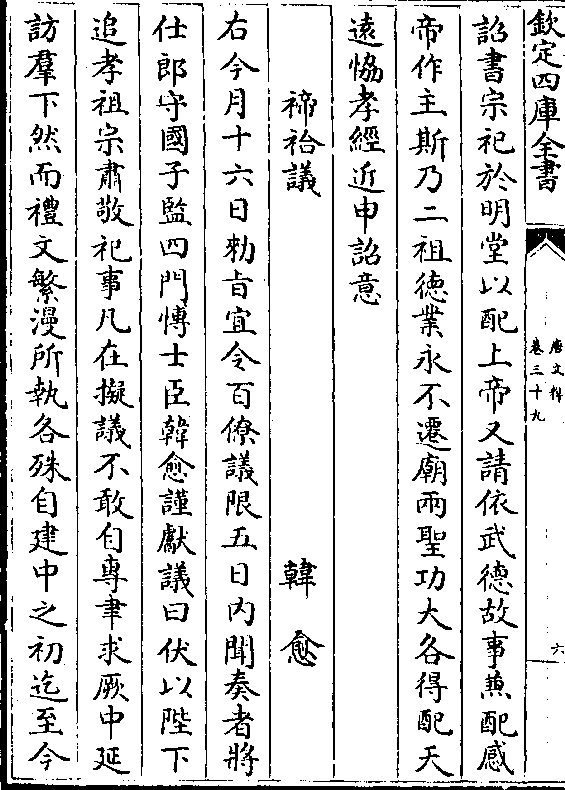 欽定四庫全書
唐文粹
卷三十九
六
詔書宗祀於明堂以配上帝又請依武德故事兼配感
帝作主斯乃二祖德業永不遷廟兩聖功大各得配天
遠恊孝經近申詔意
禘祫議 韓愈
右今月十六日勅㫖宜令百僚議限五日内聞奏者將
仕郎守國子監四門博士臣韓愈謹獻議曰伏以陛下
追孝祖宗肅敬祀事凡在擬議不敢自專聿求厥中延
訪羣下然而禮文繁漫所執各殊自建中之初迄至今